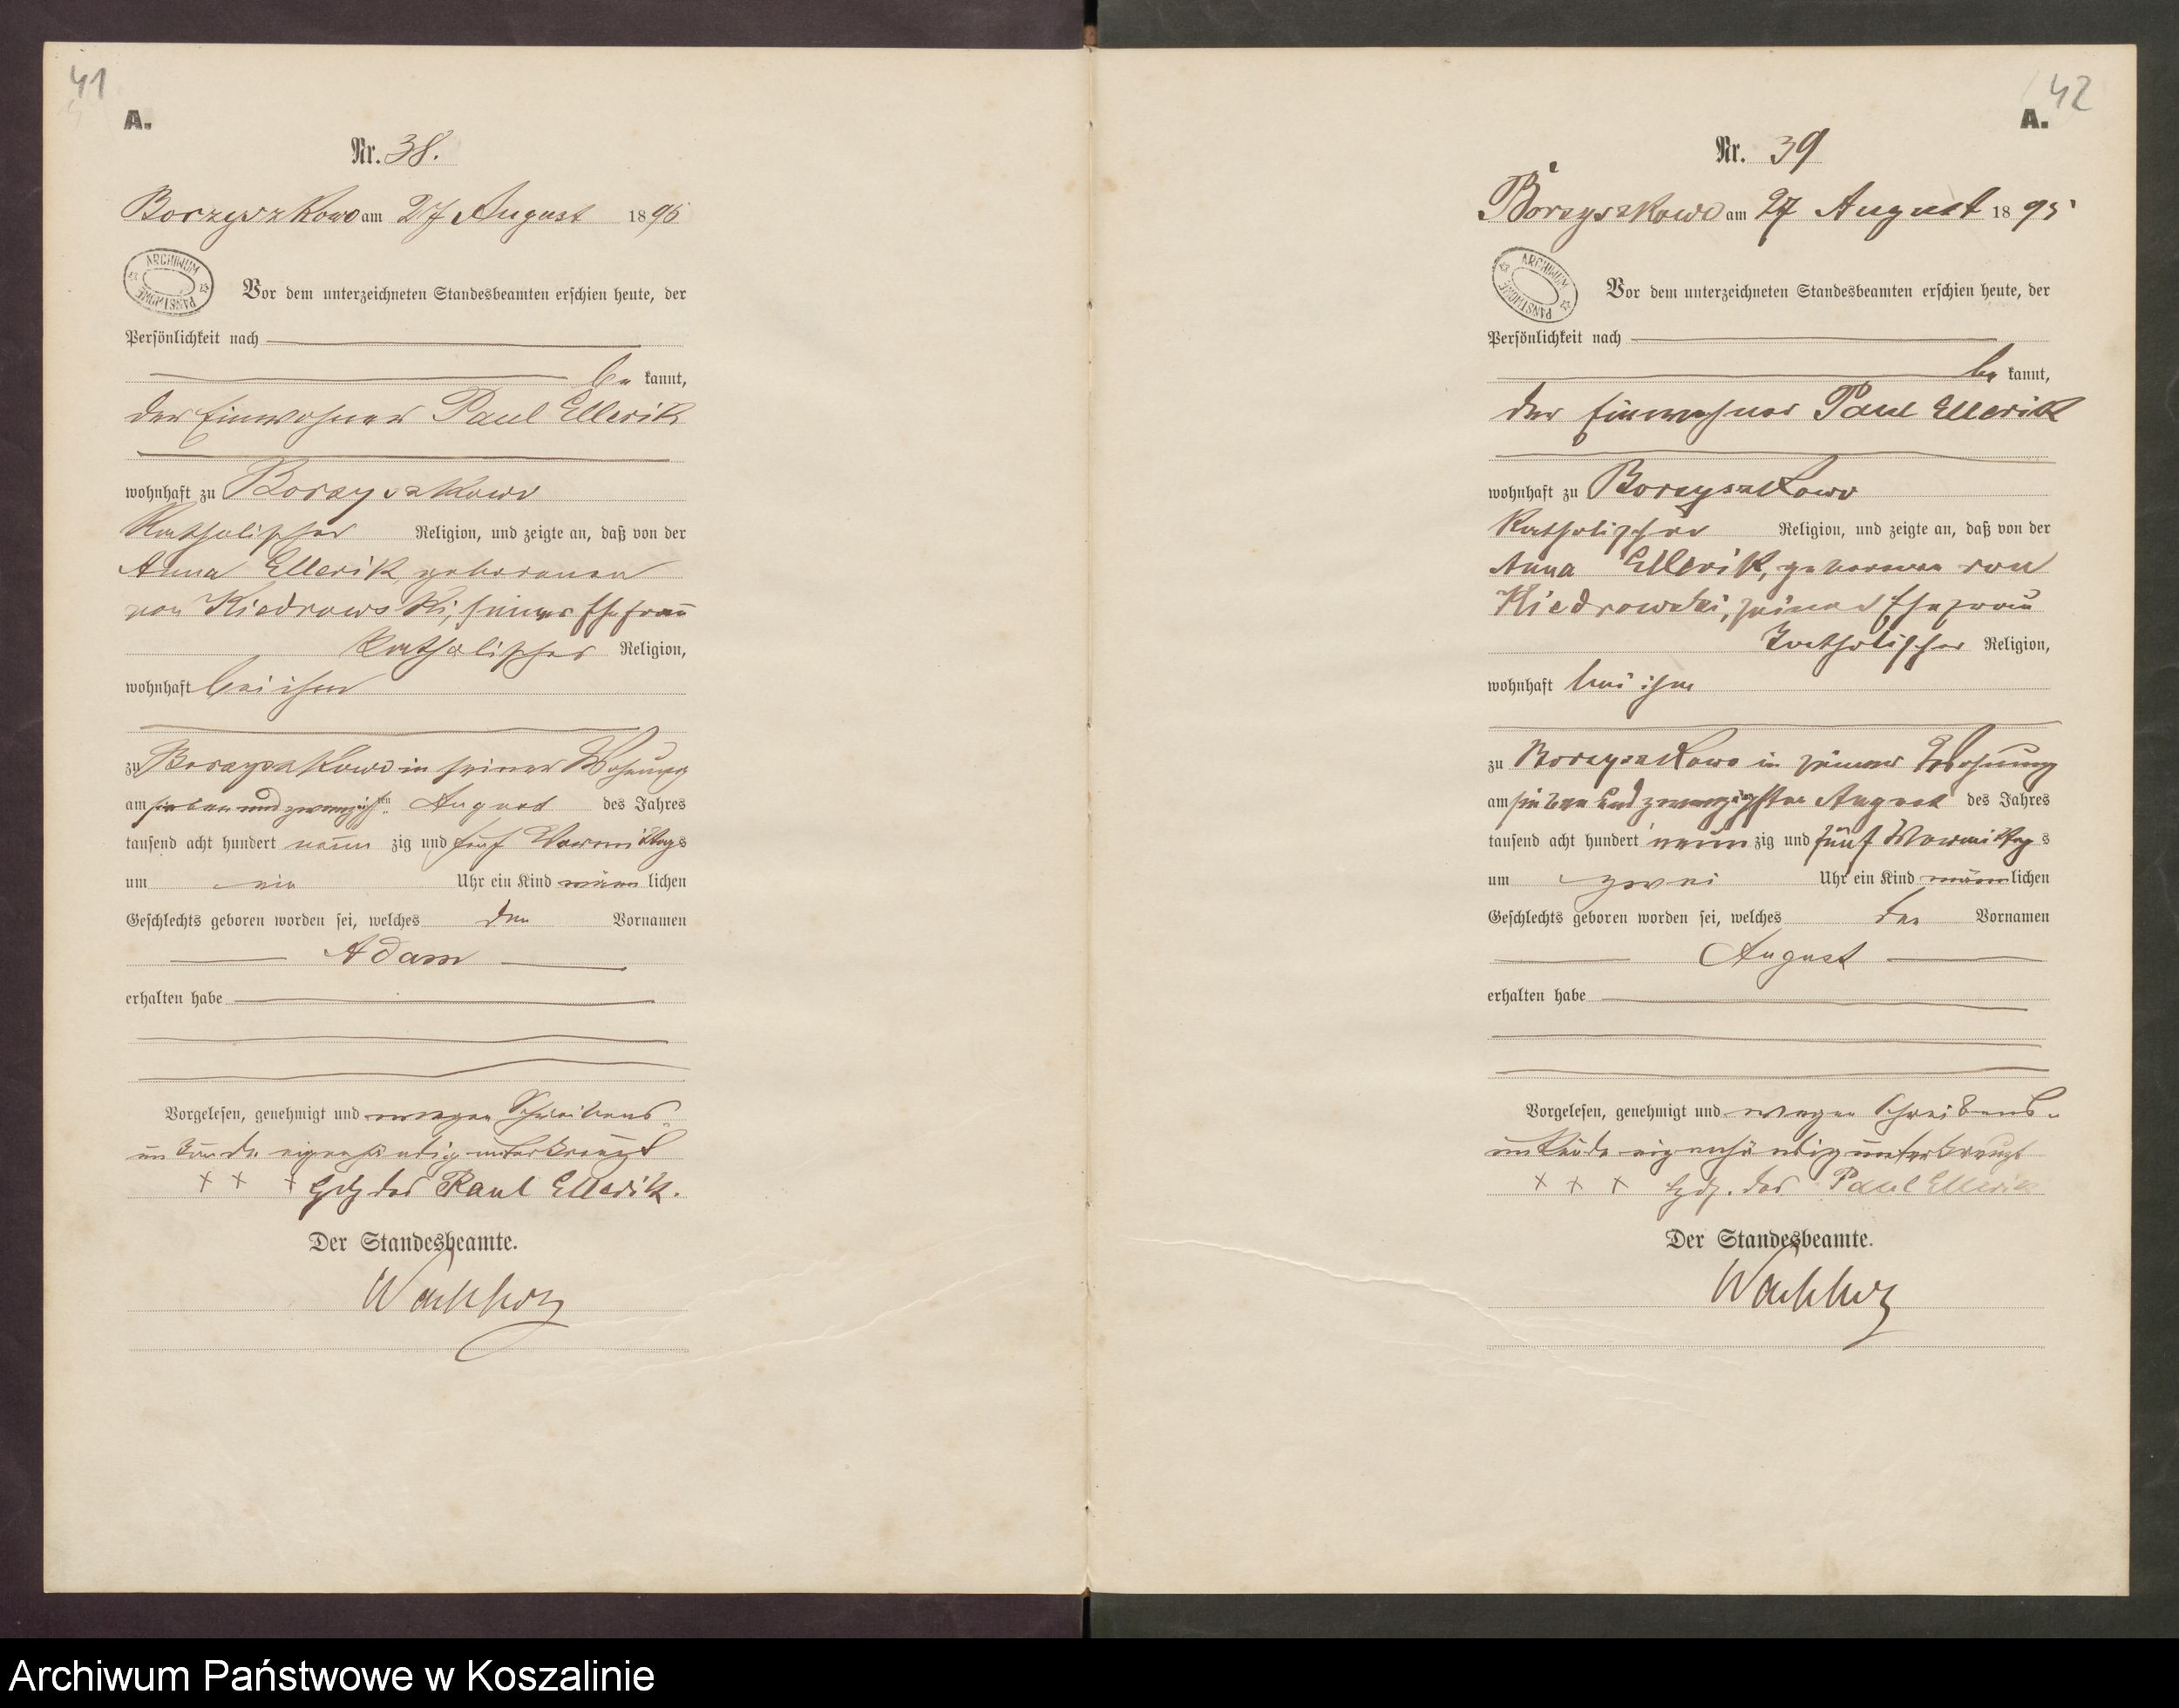 41
A.
Nr. 38.
Borzyszkowo am 27 August 1895
ARCHIWUM PAŃSTWOWE
Vor dem unterzeichneten Standesbeamten erschien heute, der
Persönlichkeit nach
be kannt,
der Einwohner Paul Ellerik
wohnhaft zu Borzyszkowo
Katholischer Religion, und zeigte an, daß von der
Anna Ellerik geborenen
von Kiedrowski, seiner Ehefrau
katholischer Religion,
wohnhaft bei ihm
zu Borzyszkowo in seiner Wohnung
am sieben und zwanzigsten August des Jahres
tausend acht hundert neun zig und fünf Vormittags
um ein Uhr ein Kind männ lichen
Geschlechts geboren worden sei, welches den Vornamen
Adam
erhalten habe
Vorgelesen, genehmigt und wegen Schreibens-
unkunde eigenhändig unterkreuzt
+ + + Hdz des Paul Ellerik.
Der Standesbeamte.
Wachholz
42
A.
Nr. 39
Borzyszkowo am 27 August 1895
ARCHIWUM PAŃSTWOWE
Vor dem unterzeichneten Standesbeamten erschien heute, der
Persönlichkeit nach
be kannt,
der Einwohner Paul Ellerik
wohnhaft zu Borzyszkowo
Katholischer Religion, und zeigte an, daß von der
Anna Ellerik, geborenen von
Kiedrowski, seiner Ehefrau
katholischer Religion,
wohnhaft bei ihm
zu Borzyszkowo in seiner Wohnung
am sieben und zwanzigsten August des Jahres
tausend acht hundert neun zig und fünf Vormittag s
um zwei Uhr ein Kind männ lichen
Geschlechts geboren worden sei, welches den Vornamen
August
erhalten habe
Vorgelesen, genehmigt und wegen Schreibens-
unkunde eigenhändig unterkreuzt
+ + + Hdz. des Paul Ellerik
Der Standesbeamte.
Wachholz
Archiwum Państwowe w Koszalinie